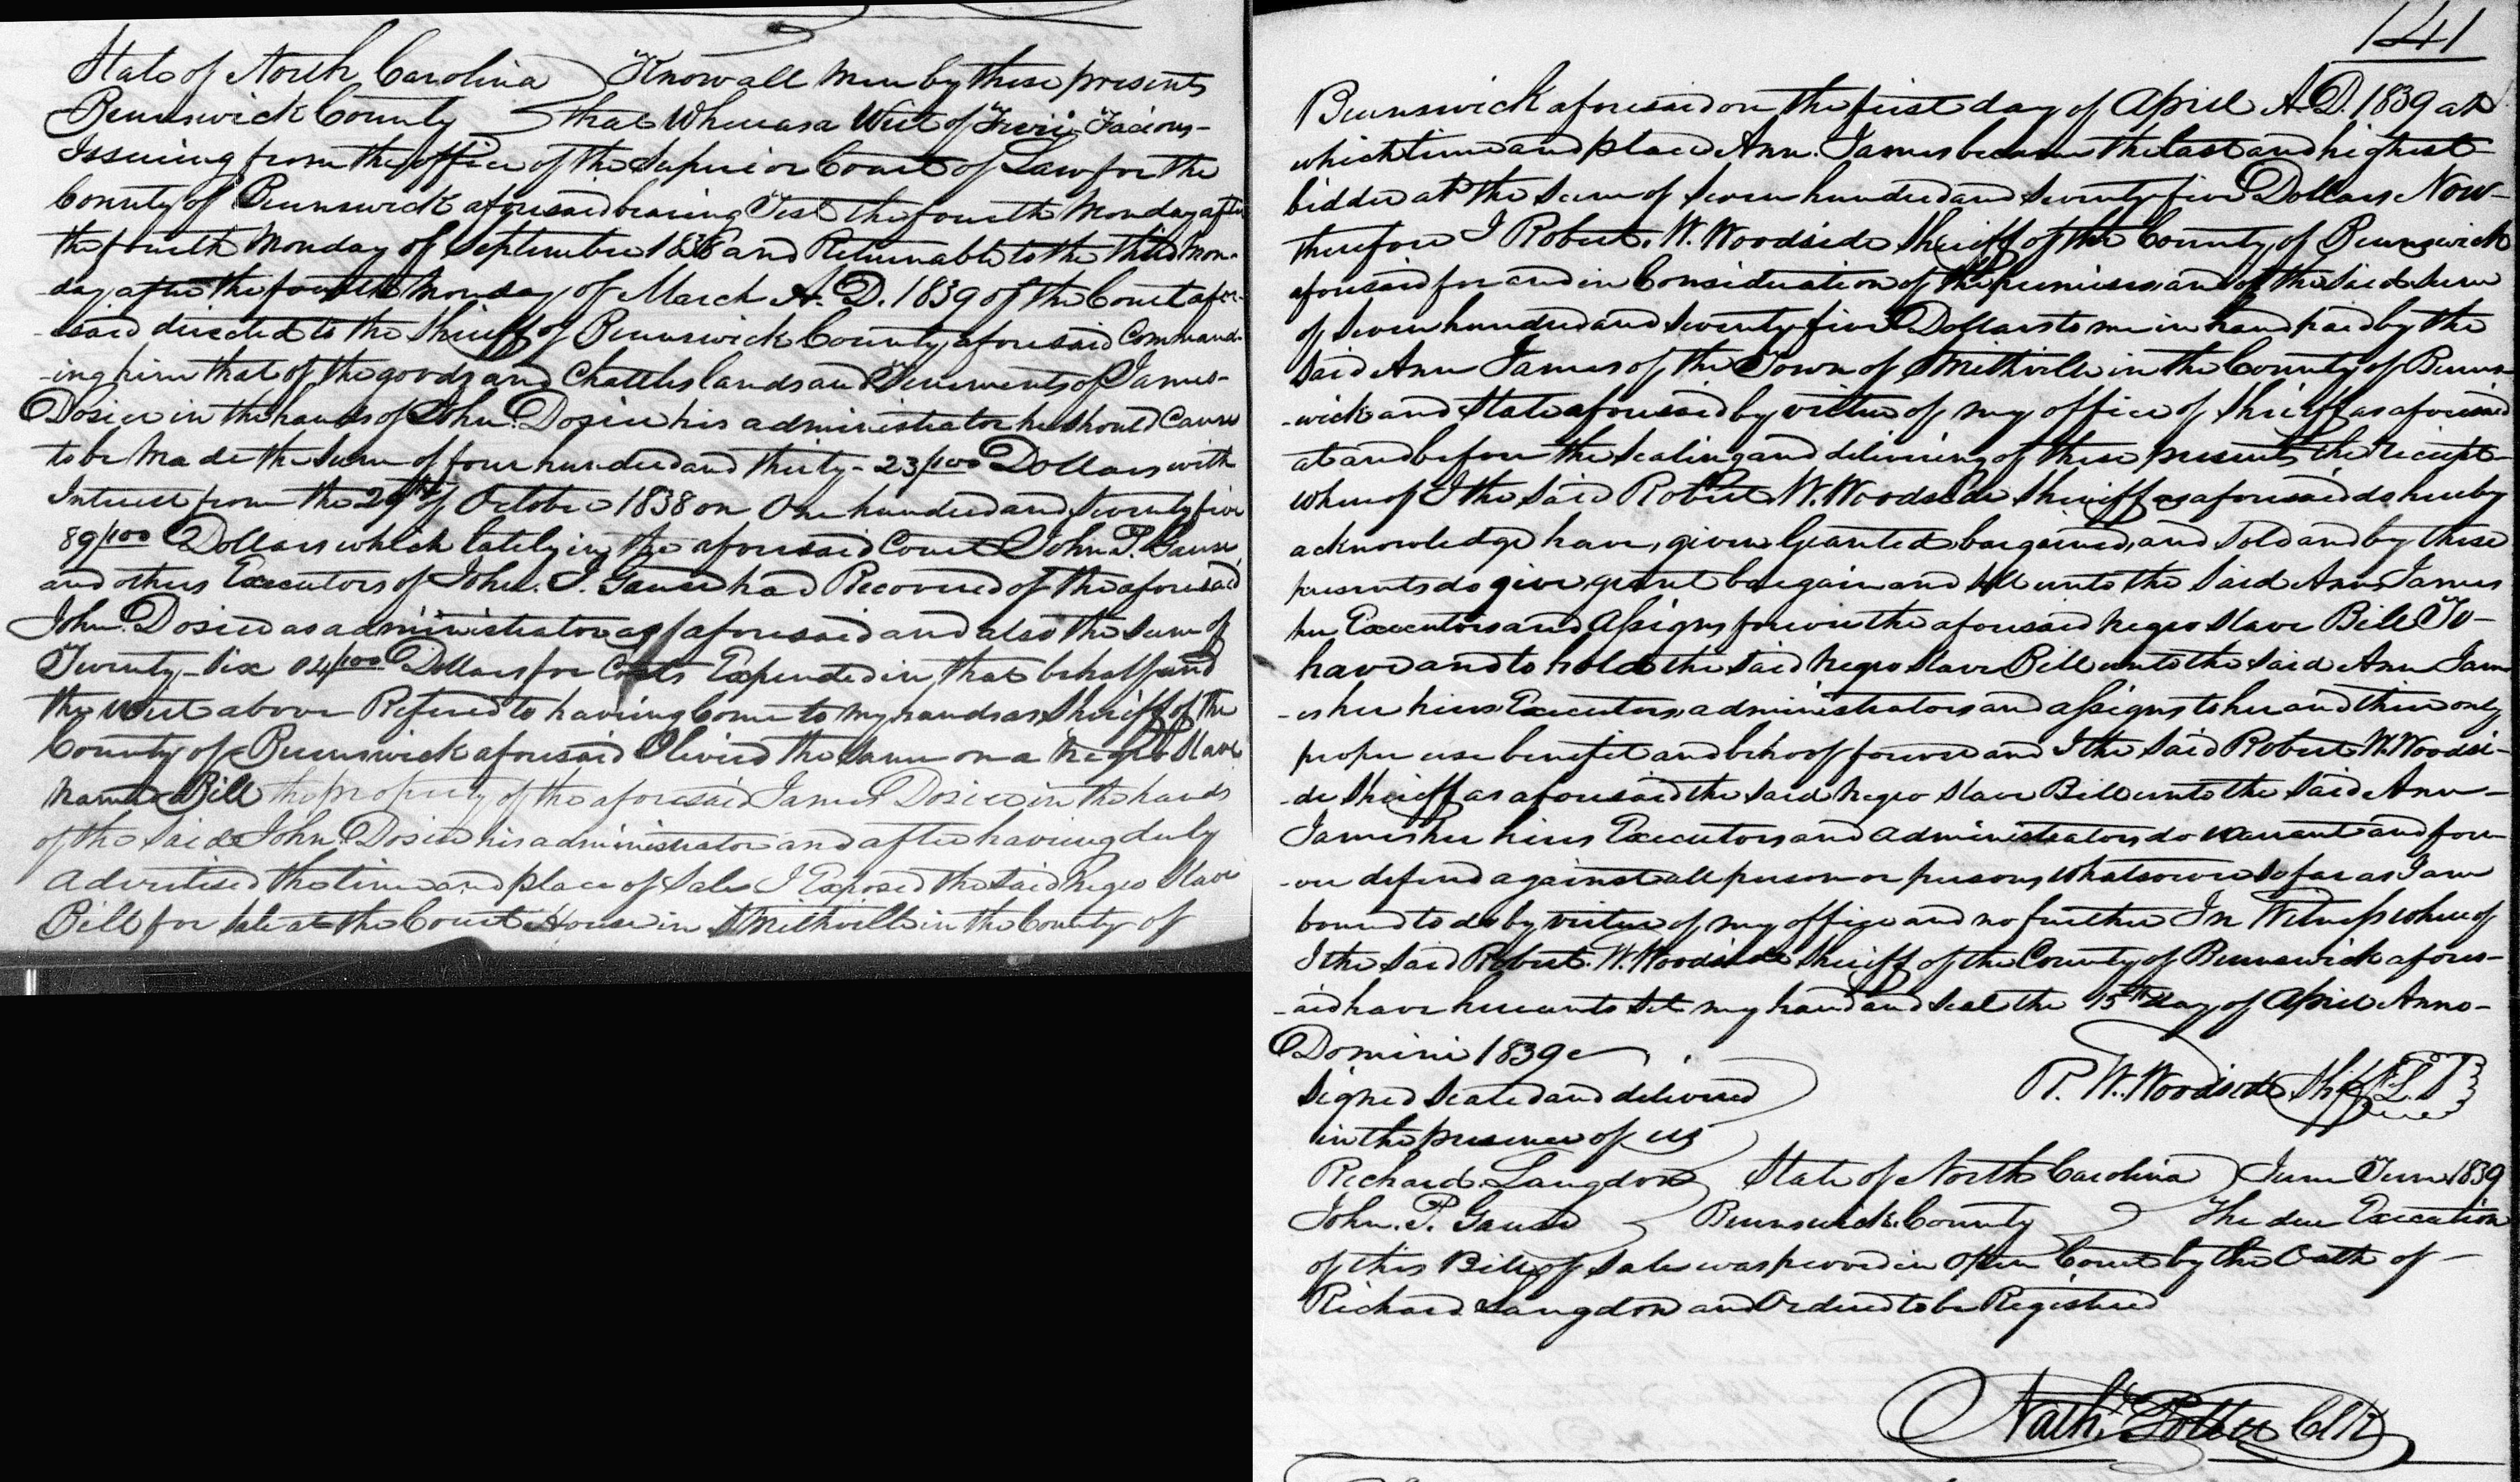 State of North Carolina Know all Men by these presents
Brunswick County that Whereas a Writ of Fieri Facious-
Issuing from the office of the Superior Court of Law for the
County of Brunswick aforesaid bearing Test the fourth Monday after
the fourth Monday of September 1838 and Returnable to the third Mon-
-day after the fourth Monday of March A. D. 1839 of the Court afor-
-esaid directed to the Sheriff of Brunswick County aforesaid Command-
-ing him that of the goods and Chattles lands and Tenements of James-
Dosier in the hands of John Dosier his administrator he should Cause
to be Made the Sum of four hundred and thirty- 23/100 Dollars with
Interest from the 29th of October 1838 on One hundred and Seventy five
89/100 Dollars which lately in the aforesaid Court John P. Gause
and others Executors of John. J. Gause had Recovered of the aforesaid
John Dosier as administrator as aforesaid and also the Sum of
Twenty-Six 04/100 Dollars for Costs Expended in that behalf and
the Writ above Refered to having Come to my hands as Sheriff of the
County of Brunswick aforesaid I levied the Same on a Negro Slave
Named Bill the property of the aforesaid James Dosier in the hands
of the Said John Dosier his administrator and after having duly
advertised the time and place of Sale I Exposed the Said Negro Slave
Bill for Sale at the Court House in Smithville in the County of
141
Brunswick aforesaid on the first day of April A.D. 1839 at
which time and place Ann. James became the last and highest
bidder at the Sum of Seven hundred and Seventy five Dollars Now-
therefore I Robert. W. Woodside Sheriff of the County of Brunswick
aforesaid for and in Consideration of the premises and of the Said Sum
of Seven hundred and Seventy five Dollars to me in hand paid by the
Said Ann James of the Town of Smithville in the County of Bruns-
-wick and State aforesaid by virtue of my office of Sheriff as aforesaid
at and before the Sealing and delivering of these presents the receipt
whereof I the Said Robert W. Woodside Sheriff as aforesaid do hereby
acknowledge have, given Granted bargained, and Sold and by these
presents do give, grant bargain and Sell unto the Said Ann James
her Executors and Assigns forever the aforesaid Negro Slave Bill To-
have and to hold the Said Negro Slave Bill unto the Said Ann Jam
-es her hiers Executors, administrators and assigns to her and their only
proper use benefit and behoof forever and I the Said Robert W. Woodsi-
-de Sheriff as aforesaid the Said Negro Slave Bill unto the Said Ann-
James her hiers Executors and administrators do warrant and fore
-ver defend against all person or persons whatsoever So far as I am
bound to do by virtue of my office and no further In Witness whereof
I the Said Robert. W. Woodside Sheriff of the County of Brunswick afores-
-aid have hereunto Set my hand and Seal the 15th day of April Anno-
Domini 1839
Signed Sealed and delivered R. W. Woodside Shff
in the presence of us
Richard Langdon State of North Carolina June Term 1839
John. P. Gause Brunswick County The due Execution
of this Bill of Sale was proved in Open Court by the Oath of-
Richard Langdon and Ordered to be Registered
Nathl Potter Clk